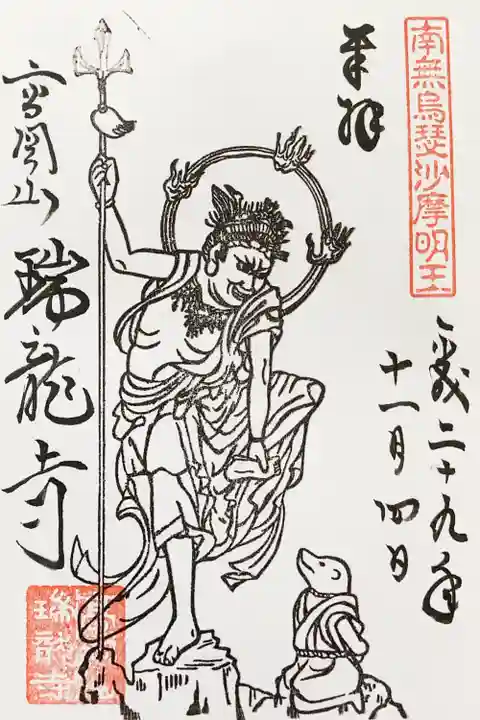 南無烏瑟沙摩明王
奉拝
平成二十九年
十一月四日
高岡山
瑞龍寺
瑞龍寺